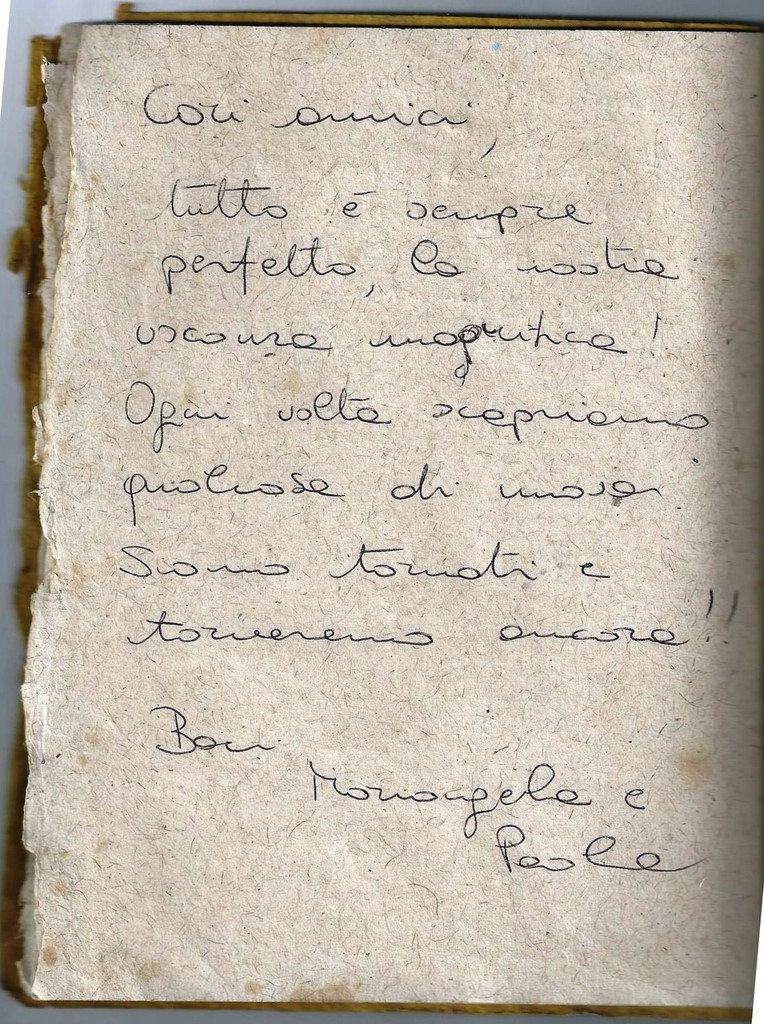 Cari amici,
tutto è sempre
perfetto, la nostra
vacanza magnifica!
Ogni volta scopriamo
qualcosa di nuovo.
Siamo tornati e
torneremo ancora!!
Baci
Mariangela e
Paola